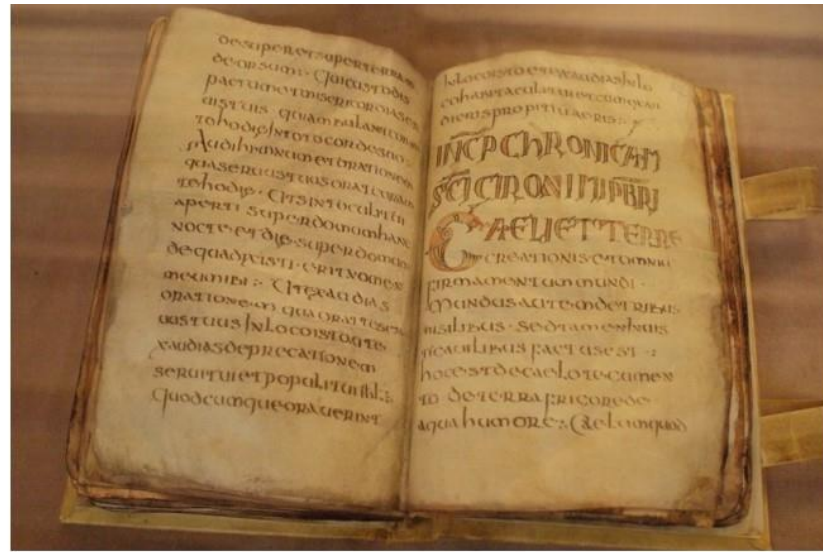 desuper et super terram
deorsum · Qui custodis
pactum et misericordiam
uistuis qui ambulant coram
te hodie in toto corde suo:
Audi hymnum et orationem
qua seruus tuus orat coram
te hodie · Ut sint oculi tui
aperti super domum hanc
nocte et die super domum
de qua dixisti · erit nomen
meum ibi: · Ut exaudias
orationem qua orat te seru
uistuus in loco isto ad te
xaudias deprecationem
serui tui et populi tui
Quodcumque orauerint
in loco isto et exaudias
cohabitaculi tui et cum
dieris propitiaueris:
INCP CHRONICAM
SCI CIRONIMI PBRI
CAELI ET TERRE
creationis et omni
firmamentum mundi ·
Mundus autem de tribus
uisilibus · sed tamen
factus est:
hoc est de caelo te cum
to de terra frigore de
aqua humore: Caelum quod